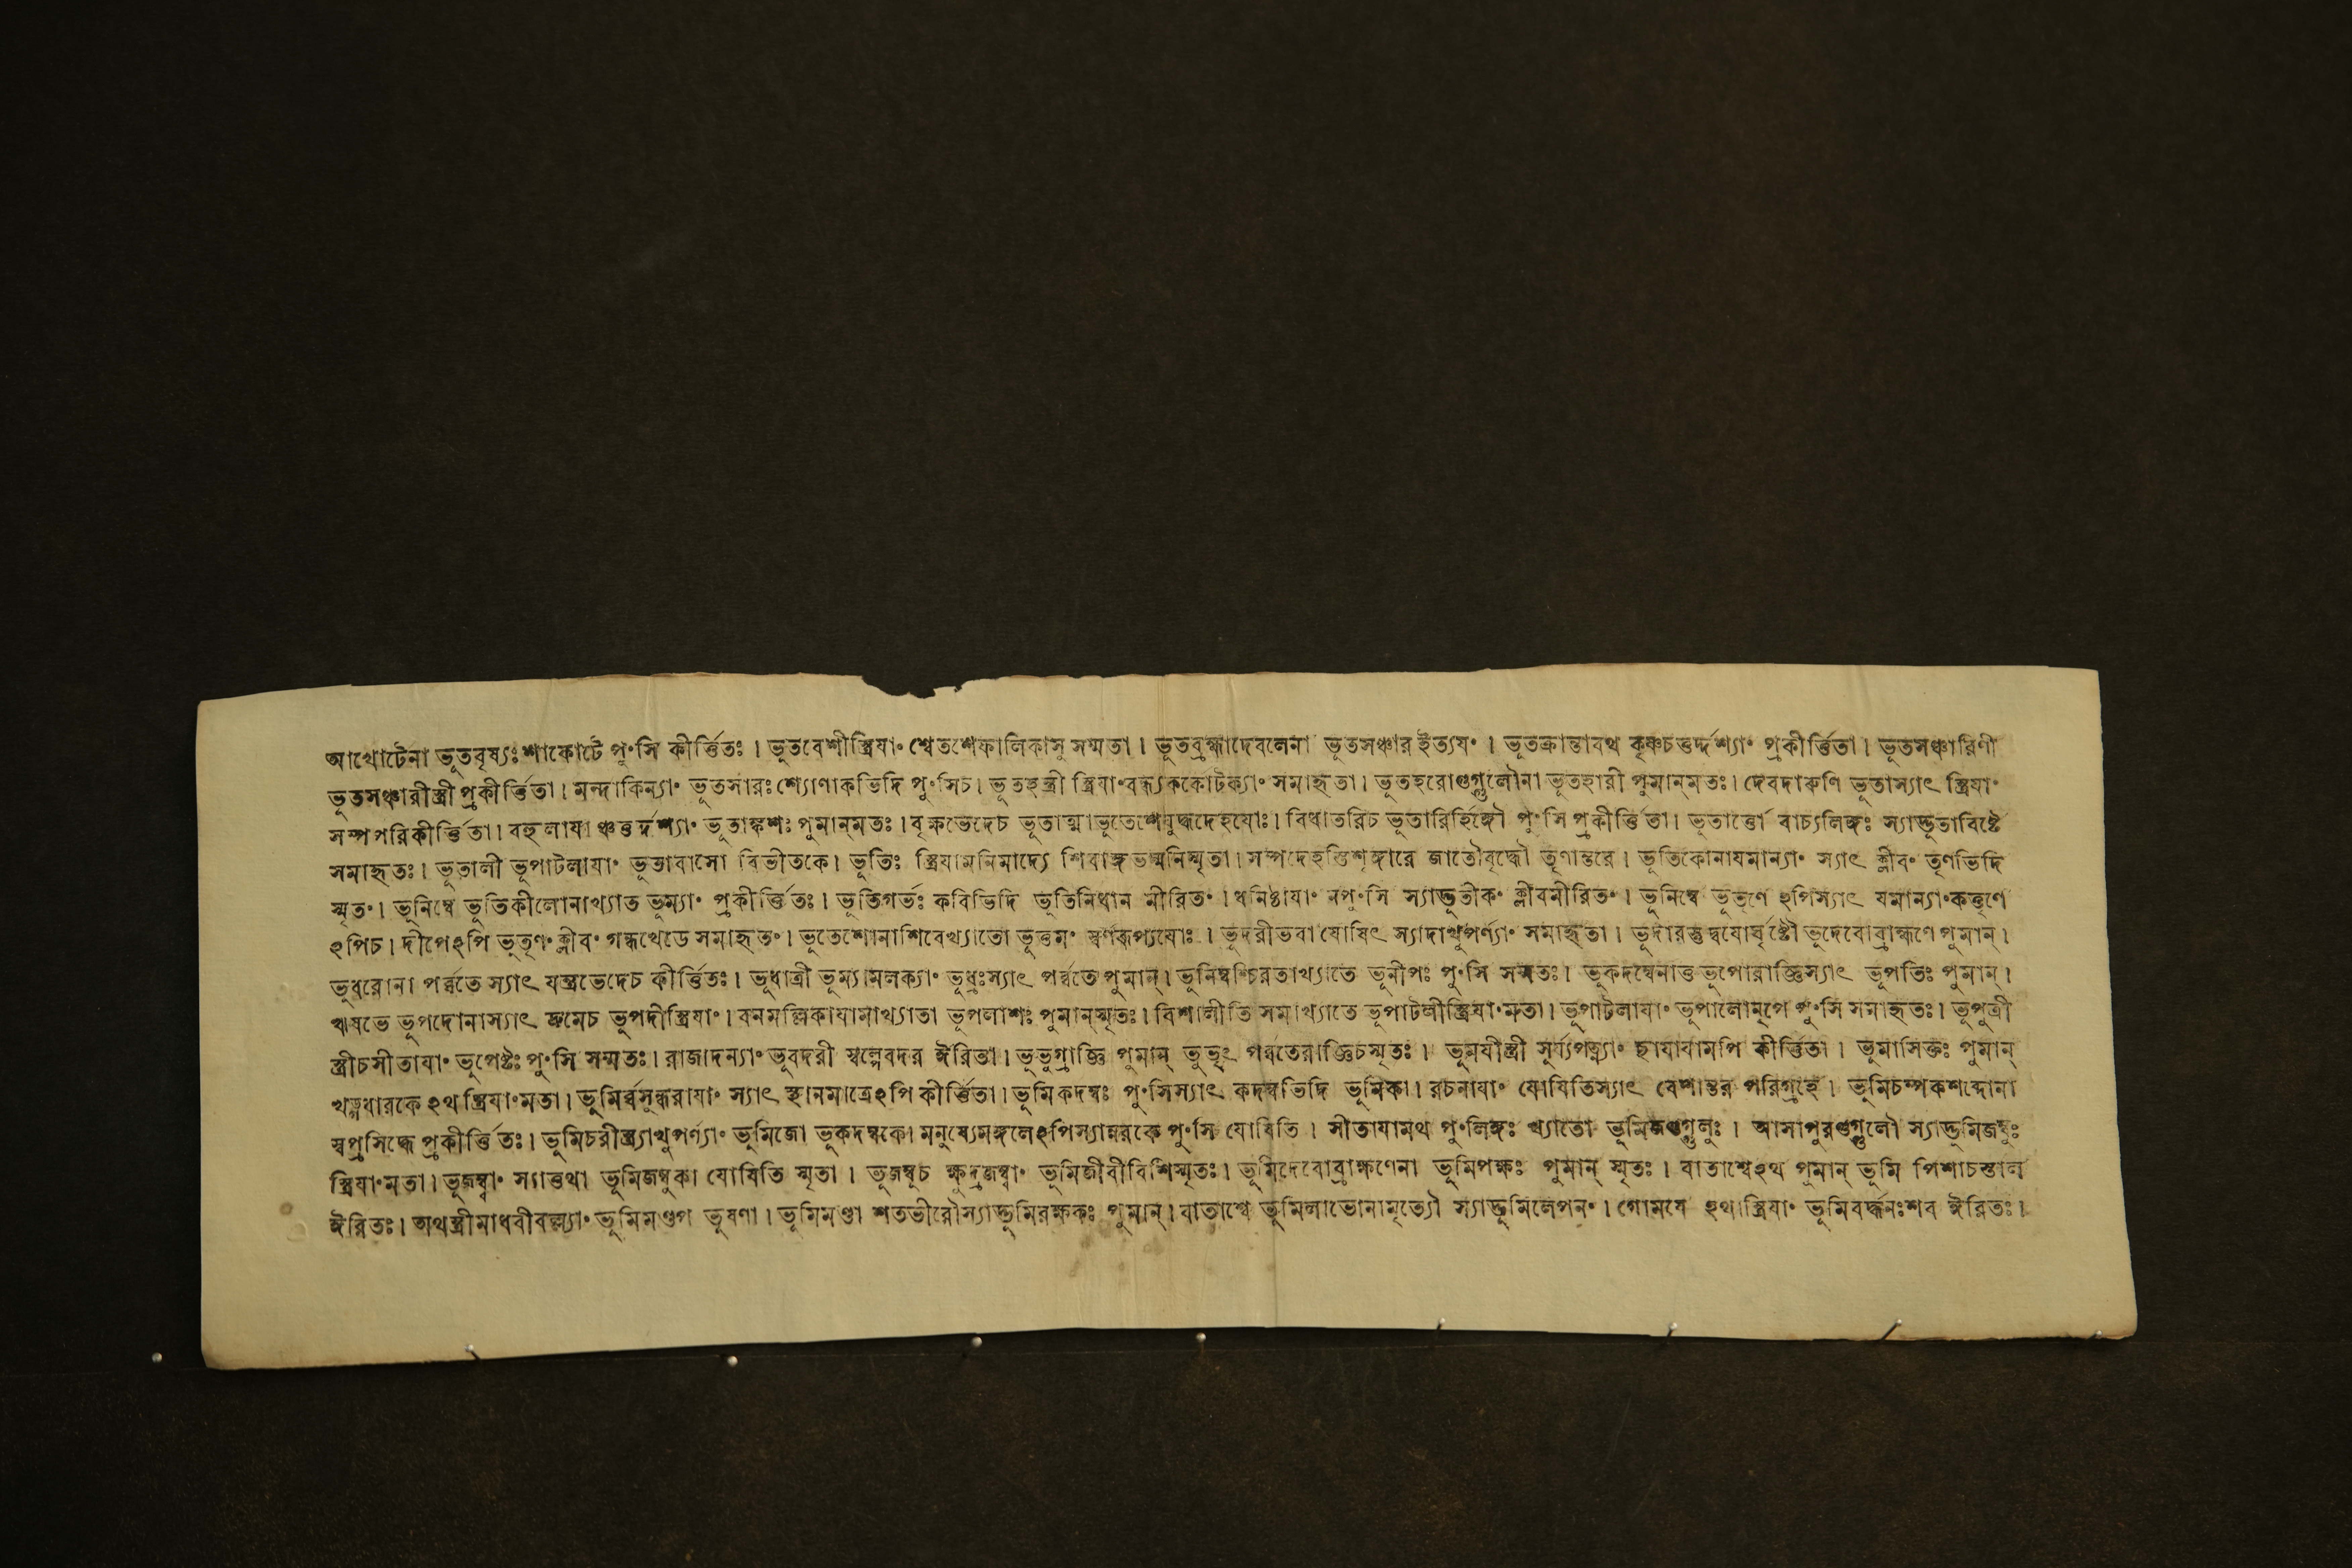 আখোটেনা ভূতবৃষ্যঃশাকোটে পু৺সি কীর্ত্তিতঃ । ভূতবেশীস্ত্রিযা৺ শ্বেতশেফালিকাসু সম্মতা । ভূতব্রহ্মাদেবলেনা ভূতসঞ্চার ইত্যয৺ । ভূতক্রান্তাবথ কৃষ্ণচতুর্দ্দশ্যা৺ প্রকীর্ত্তিতা । ভূতসঞ্চারিণী
ভূতসঞ্চারীস্ত্রী প্রকীর্ত্তিতা । মন্দাকিন্যা৺ ভূতসারঃ শ্যোণাকভিদি পু৺সিচ । ভূতহন্ত্রী স্ত্রিযা৺বন্ধ্যককোটক্যা৺ সমাহৃতা । ভূতহরোগুগ্গুলৌনা ভূতহারী পুমান্মতঃ । দেবদারুণি ভূতাস্যাৎ স্ত্রিযা৺
সম্পপরিকীর্ত্তিতা । বহুলাযাঞ্চতুর্দ্দশ্যা৺ ভূতাঙ্কশঃ পুমান্মতঃ । বৃক্ষভেদেচ ভূতাত্মাভূতেশেযুদ্ধদেহযোঃ । বিধাতরিচ ভূতারির্হিঙ্গৌ পু৺সি প্রকীর্ত্তিতা । ভূতার্ত্তো বাচ্যলিঙ্গঃ স্যাদ্ভূতাবিষ্টে
সমাহৃতঃ । ভূতালী ভূপাটলাযা৺ ভূতাবাসো বিভীতকে । ভূতিঃ স্ত্রিযামনিমাদ্যে শিবাঙ্গভস্মনিস্মৃতা । সম্পদেহস্তিশৃঙ্গারে জাতৌবৃদ্ধৌ তৃণান্তরে । ভূতিকোনাযমান্যা৺ স্যাৎ ক্লীব৺ তৃণভিদি
স্মৃত৺ । ভূনিম্বে ভূতিকীলোনাখ্যাত ভূম্যা৺ প্রকীর্ত্তিতঃ । ভূতিগর্ভঃ কবিভিদি ভূতিনিধান মীরিত৺ । ধনিষ্ঠাযা৺ নপু৺সি স্যাদ্ভূতীক৺ ক্লীবমীরিত৺ । ভূনিম্বে ভূতৃণে ঽপিস্যাৎ যমান্যা৺কত্তৃণে
ঽপিচ । দীপেঽপি ভূতৃণ৺ ক্লীব৺ গন্ধখেডে সমাহৃত৺ । ভূতেশোনাশিবেখ্যাতো ভূত্তম৺ স্বর্ণরূপ্যযোঃ । ভূদরীভবা যোষিৎ স্যাদাখুপর্ণ্যা৺ সমাহৃতা । ভূদারস্তুদ্বযোর্ঘৃষ্টৌ ভূদেবোব্রাহ্মণে পুমান্ ।
ভূধরোনা পর্ব্বতে স্যাৎ যন্ত্রভেদেচ কীর্ত্তিতঃ । ভূধাত্রী ভূম্যামলক্যা৺ ভূধ্রঃস্যাৎ পর্ব্বতে পুমান্ । ভূনিম্বশ্চিরতাখ্যাতে ভূনীপঃ পু৺সি সম্মতঃ । ভূকদম্বেনাত্ত ভূপোরাজ্ঞিস্যাৎ ভূপতিঃ পুমান্ ।
ঋষভে ভূপদোনাস্যাৎ দ্রুমেচ ভূপদীস্ত্রিযা৺ । বনমল্লিকাযামাখ্যাতা ভূপলাশঃ পুমান্স্মৃতঃ । বিশালীতি সমাখ্যাতে ভূপাটলীস্ত্রিযা৺মতা । ভূপাটলাযা৺ ভূপালোনৃপে পু৺সি সমাহৃতঃ । ভূপুত্রী
স্ত্রীচসীতাযা৺ ভূপেষ্টঃ পু৺সি সম্মতঃ । রাজাদন্যা৺ ভূবদরী স্বল্পেবদর ঈরিতা । ভূভুগ্রাজ্ঞি পুমান্ ভূভৃৎ পর্ব্বতেরাজ্ঞিচস্মৃতঃ । ভূমযীস্ত্রী সূর্য্যপত্ন্যা৺ ছাযাযামপি কীর্ত্তিতা । ভূমাসিক্তঃ পুমান্
খড়্গধারকে ঽথ স্ত্রিযা৺মতা । ভূমির্ব্বসুন্ধরাযা৺ স্যাৎ স্থানমাত্রেঽপি কীর্ত্তিতা । ভূমিকদম্বঃ পু৺সিস্যাৎ কদম্বভিদি ভূমিকা । রচনাযা৺ যোষিতিস্যাৎ বেশান্তর পরিগ্রহে । ভূমিচম্পকশব্দোনা
স্বপ্রসিদ্ধে প্রকীর্ত্তিতঃ । ভূমিচরীস্ত্র্যাখুপর্ণ্যা৺ ভূমিজো ভূকদম্বকে । মনুষ্যেমঙ্গলেঽপিস্যান্নরকে পু৺সি যোষিতি । সীতাযামথ পু৺লিঙ্গঃ খ্যাতো ভূমিজগুগ্গুলুঃ । আসাপুরগুগ্গুলৌ স্যাদ্ভূমিজম্বুঃ
স্ত্রিযা৺মতা । ভূজম্ব্বা৺ স্যাত্তথা ভূমিজম্বুকা যোষিতি স্মৃতা । ভূজম্বুচ ক্ষুদ্রজম্ব্বা৺ ভূমিজীবীবিশিস্মৃতঃ । ভূমিদেবোব্রাহ্মণেনা ভূমিপক্ষঃ পুমান্ স্মৃতঃ । বাতাশ্বেঽথ পুমান্ ভূমি পিশাচস্তাল
ঈরিতঃ । অথস্ত্রীমাধবীবল্ল্যা৺ ভূমিমণ্ডপ ভূষণা । ভূমিমণ্ডা শতভীরৌস্যাদ্ভূমিরক্ষকঃ পুমান্ । বাতাশ্বে ভূমিলাভোনামৃত্যৌ স্যাদ্ভূমিলেপন৺ । গোমযে ঽথাস্ত্রিযা৺ ভূমিবর্দ্ধনঃশব ঈরিতঃ ।